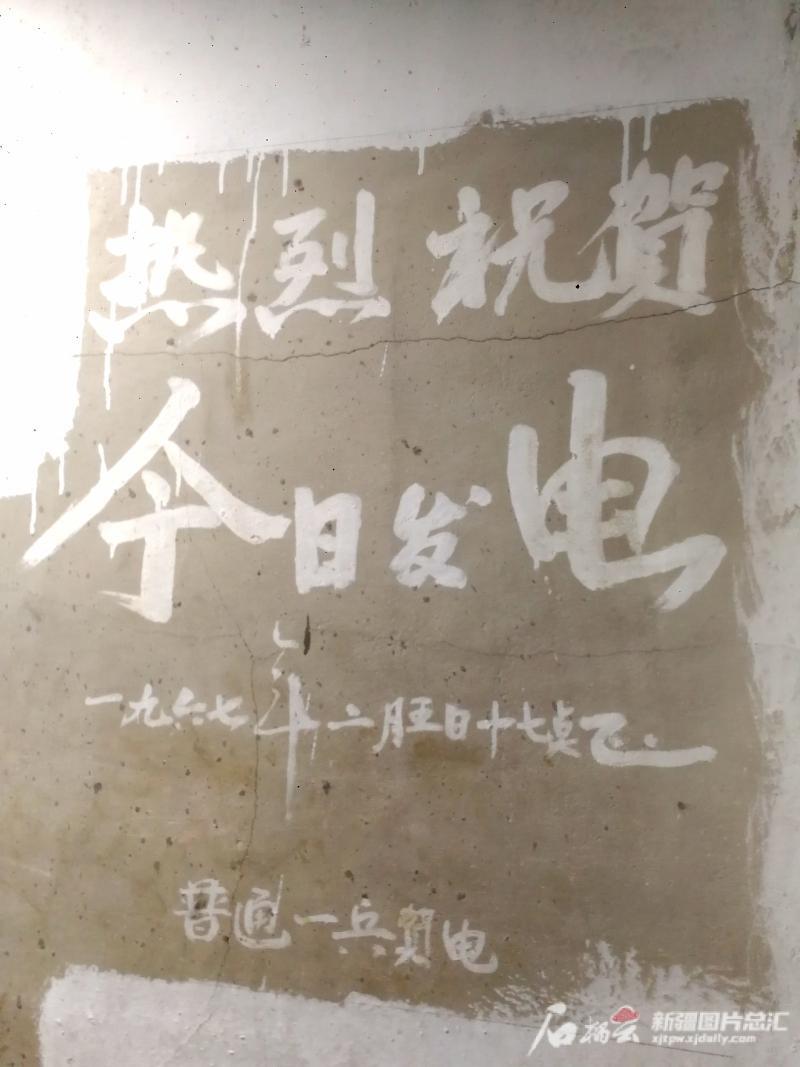 热烈祝賀
今日发电
一九六七年二月五日十七点正.
普通一兵贺电
石榴云
新疆图片总汇
xjtpw.xjdaily.com